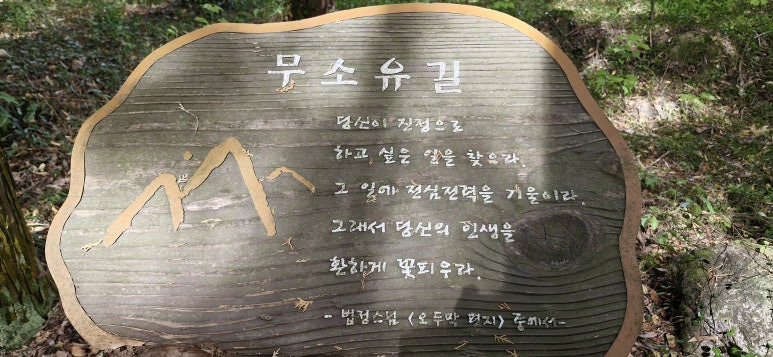 무소유길
당신이 진정으로
하고 싶은 일을 찾으라.
그 일에 전심전력을 기울이라.
그래서 당신의 인생을
환하게 꽃피우라.
- 법정스님 <오두막 편지> 중에서-